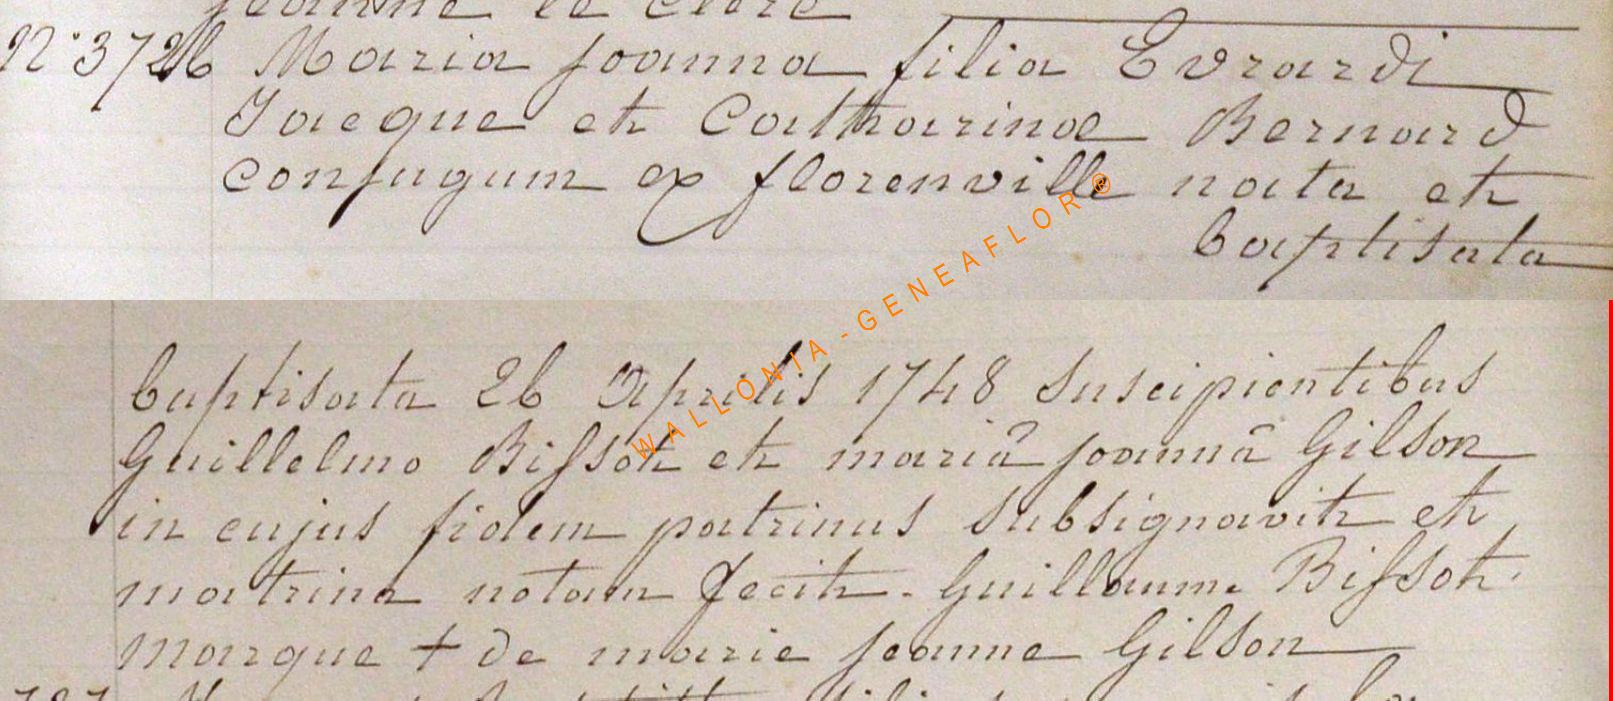 jeanne le Clerc
N° 3726 Maria joanna filia Evrardi
Jacque et Catharinæ Bernard
conjugum ex florenville nata et
baptisata
baptisata 26 Aprilis 1748 suscipientibus
Guillelmo Bissot et mariâ joannâ Gilson
in cujus fidem patrinus subsignavit et
matrina notam fecit. Guillaume Bissot.
marque + de marie jeanne Gilson
WALLONIA-GENEAFLOR®